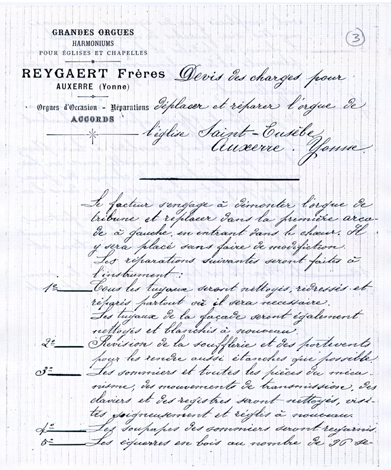 GRANDES ORGUES
HARMONIUMS
POUR ÉGLISES ET CHAPELLES
REYGAERT Frères
AUXERRE (Yonne)
Orgues d'Occasion - Réparations
ACCORDS
3
Devis des charges pour
déplacer et réparer l'orgue de
l'église Saint-Eusèbe
Auxerre. Yonne.
Le facteur s'engage à démonter l'orgue de
tribune et replacer dans la première arca-
de à gauche, en entrant dans le chœur; Il
y sera placé sans faire de modifiction.
Les réparations suivantes seront faites à
l'instrument:
1º Tous les tuyaux seront nettoyés, redressés et
réparés partout où il sera necessaire.
Les tuyaux de la façade seront également
nettoyés et blanchis à nouveau.
2º Révision de la soufflerie et des portevents
pour les rendre aussi étanches que possible.
3º Les sommiers et toutes les pièces du méca-
nisme, des mouvements de transmission, des
claviers et des registres seront nettoyés, visi-
tés soigneusement et réglés à nouveau.
4º Les soupapes des sommiers seront regarnis
5º Les équerres en bois au nombre de 96 se-